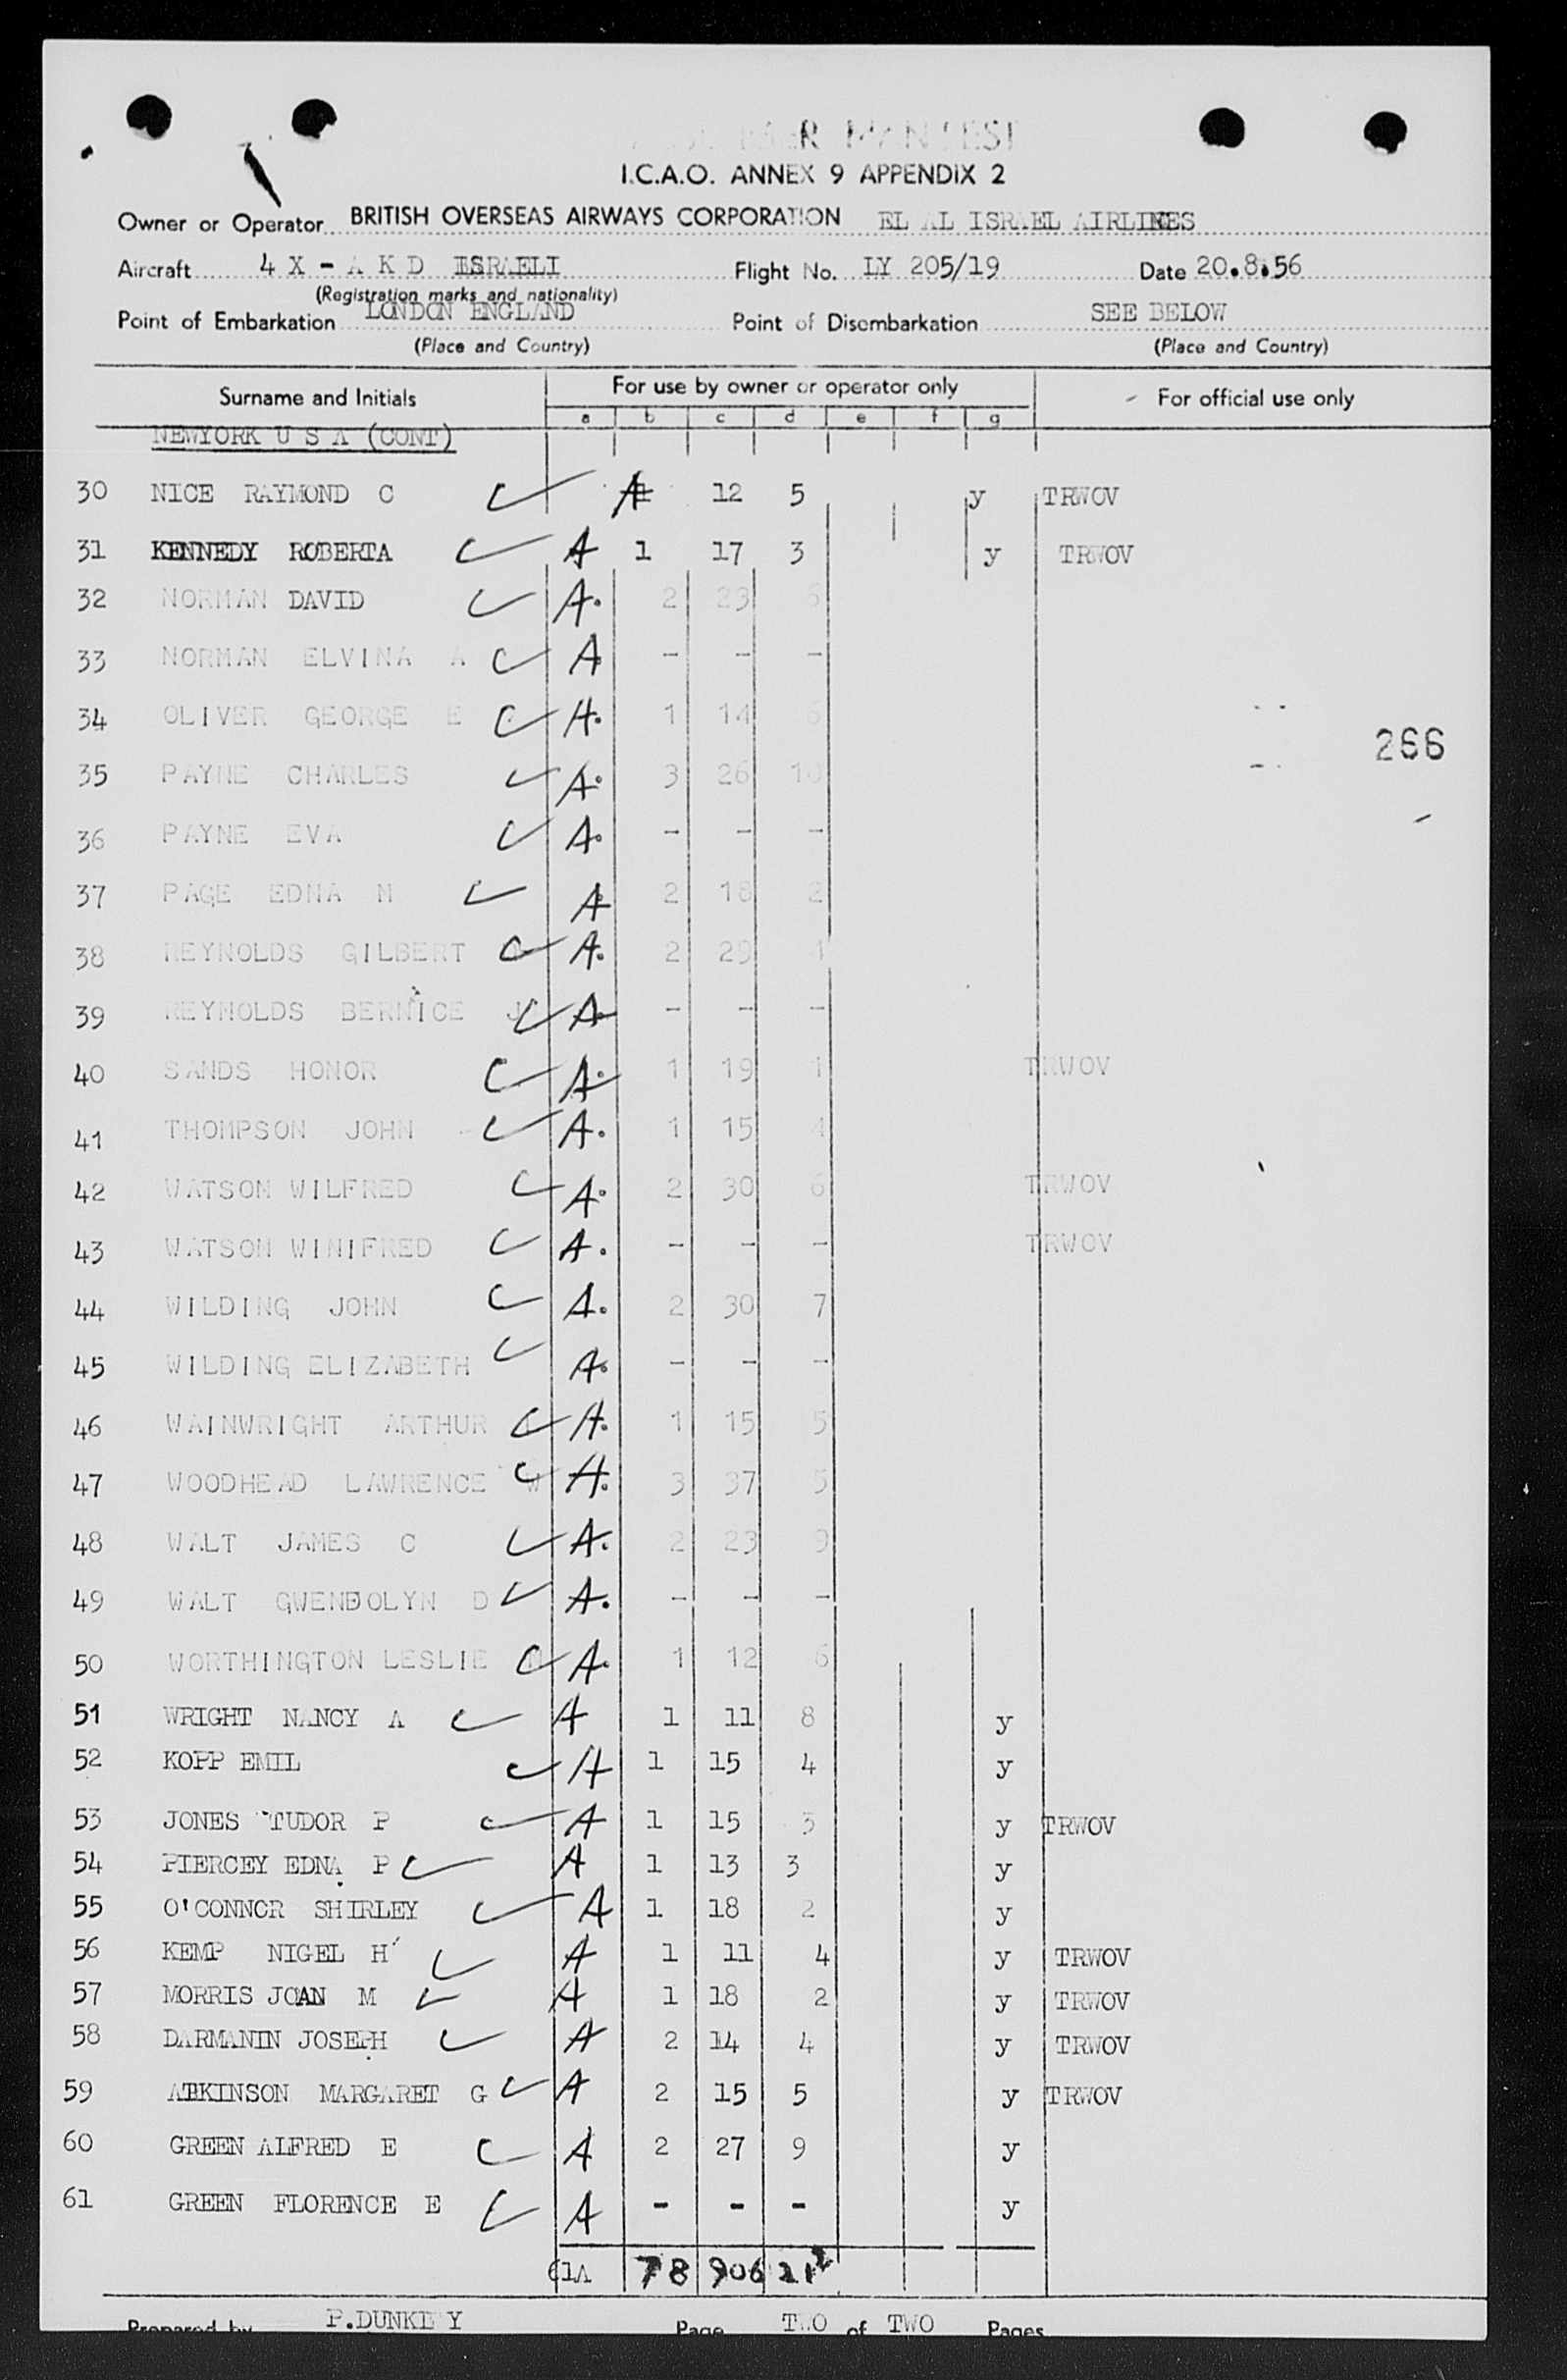 R MANIFEST
I.C.A.O. ANNEX 9 APPENDIX 2
Owner or Operator BRITISH OVERSEAS AIRWAYS CORPORATION EL AL ISRAEL AIRLINES
Aircraft 4 X - A K D ISRAELI Flight No. LY 205/19 Date 20.8.56
(Registration marks and nationality)
Point of Embarkation LONDON ENGLAND Point of Disembarkation SEE BELOW
(Place and Country) (Place and Country)
Surname and Initials For use by owner or operator only For official use only
a b c d e f g
NEWYORK U S A (CONT)
30 NICE RAYMOND C A 12 5 y TRWOV
31 KENNEDY ROBERTA A 1 17 3 y TRWOV
32 NORMAN DAVID A. 2 23 6
33 NORMAN ELVINA A A - - -
34 OLIVER GEORGE E A. 1 14 6
266
35 PAYNE CHARLES A. 3 26 10
36 PAYNE EVA A. - - -
37 PAGE EDNA M A 2 18 2
38 REYNOLDS GILBERT A. 2 29 1
39 REYNOLDS BERNICE J A - - -
40 SANDS HONOR A. 1 19 1 TRWOV
41 THOMPSON JOHN A. 1 15 4
42 WATSON WILFRED A. 2 30 6 TRWOV
43 WATSON WINIFRED A. - - - TRWOV
44 WILDING JOHN A. 2 30 7
45 WILDING ELIZABETH A. - - -
46 WAINWRIGHT ARTHUR A. 1 15 5
47 WOODHEAD LAWRENCE W A. 3 37 5
48 WALT JAMES C A. 2 23 9
49 WALT GWENDOLYN D A. - - -
50 WORTHINGTON LESLIE A. 1 12 6
51 WRIGHT NANCY A A 1 11 8 y
52 KOPP EMIL A 1 15 4 y
53 JONES TUDOR P A 1 15 3 y TRWOV
54 PIERCEY EDNA P A 1 13 3 y
55 O'CONNOR SHIRLEY A 1 18 2 y
56 KEMP NIGEL H A 1 11 4 y TRWOV
57 MORRIS JOAN M A 1 18 2 y TRWOV
58 DARMANIN JOSEPH A 2 14 4 y TRWOV
59 ATKINSON MARGARET G A 2 15 5 y TRWOV
60 GREEN ALFRED E A 2 27 9 y
61 GREEN FLORENCE E A - - - y
61A 78 906 212
Prepared by P.DUNKLEY Page TWO of TWO Pages